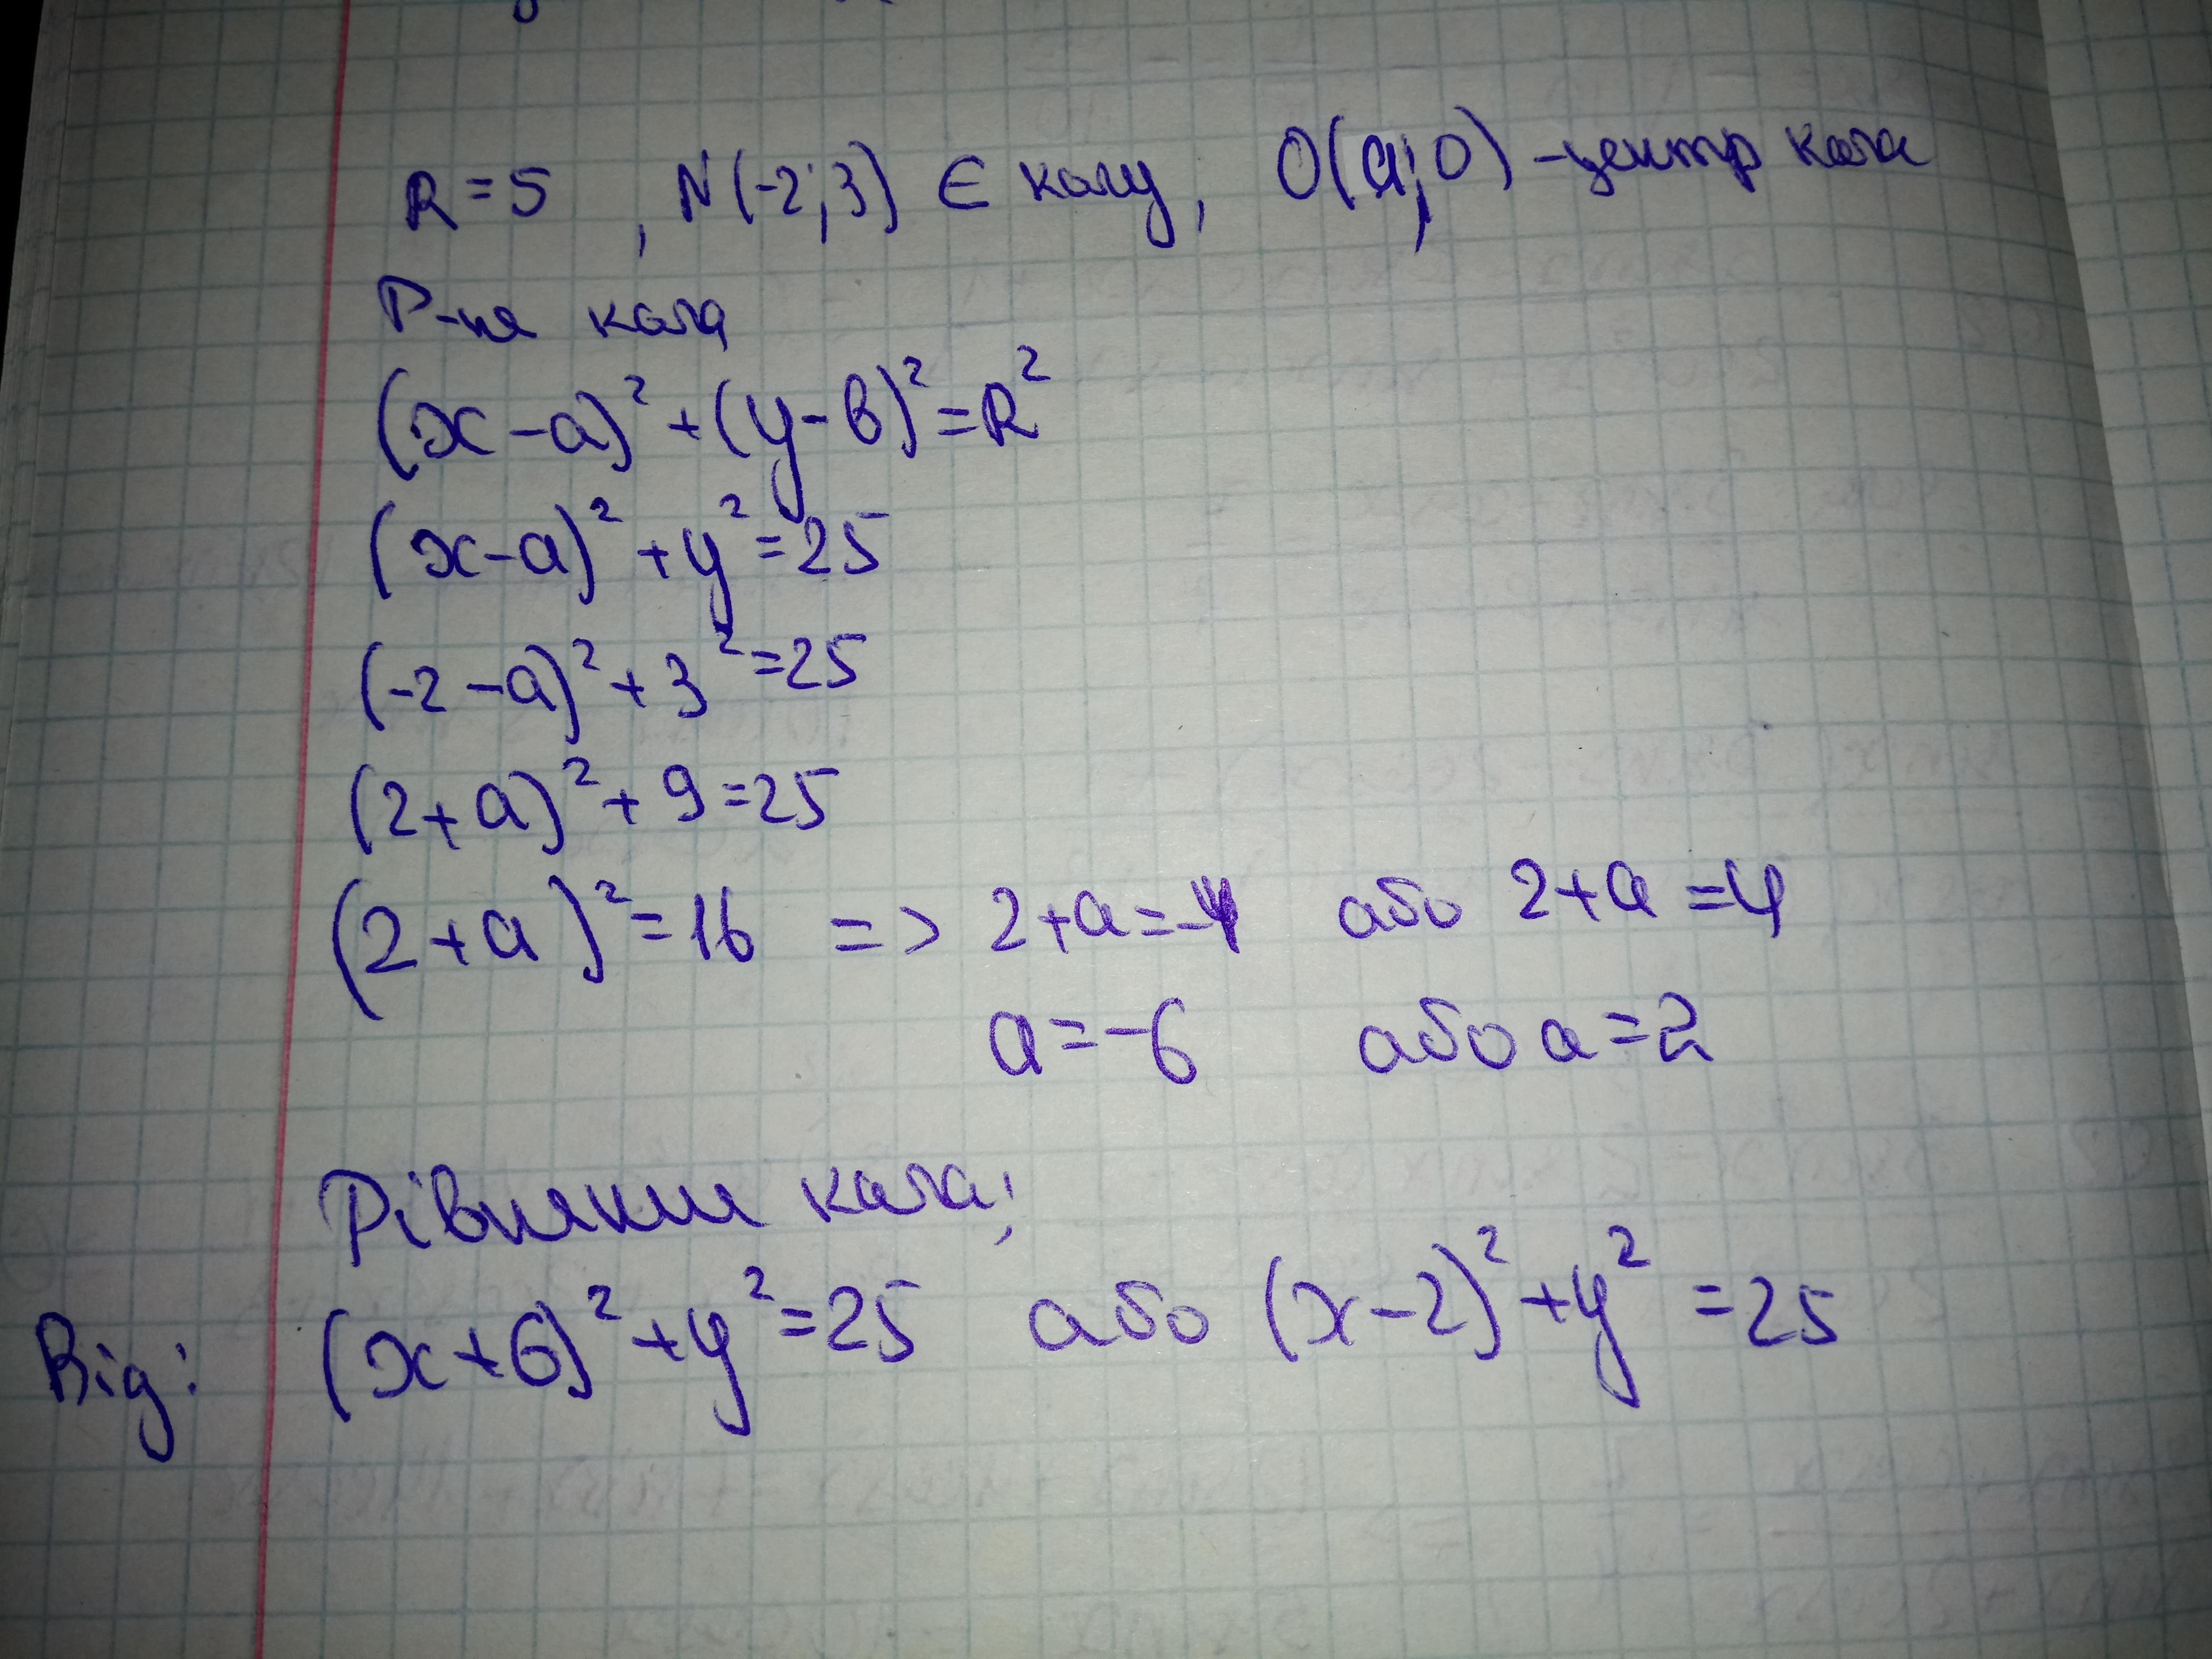 R = 5 , N(-2;3) ∈ колу, O(a;0) - центр кола
Р-ня кола
(x-a)² + (y-b)² = R²
(x-a)² + y² = 25
(-2-a)² + 3² = 25
(2+a)² + 9 = 25
(2+a)² = 16 => 2+a=-4 або 2+a=4
a=-6 або a=2
Рівняння кола:
Від: (x+6)² + y² = 25 або (x-2)² + y² = 25